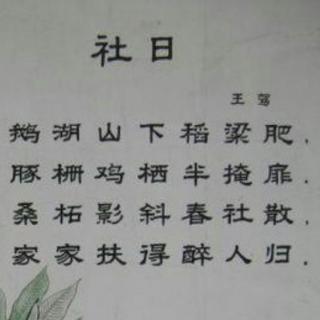 社日
王驾
鹅湖山下稻粱肥，
豚栅鸡栖半掩扉。
桑柘影斜春社散，
家家扶得醉人归。